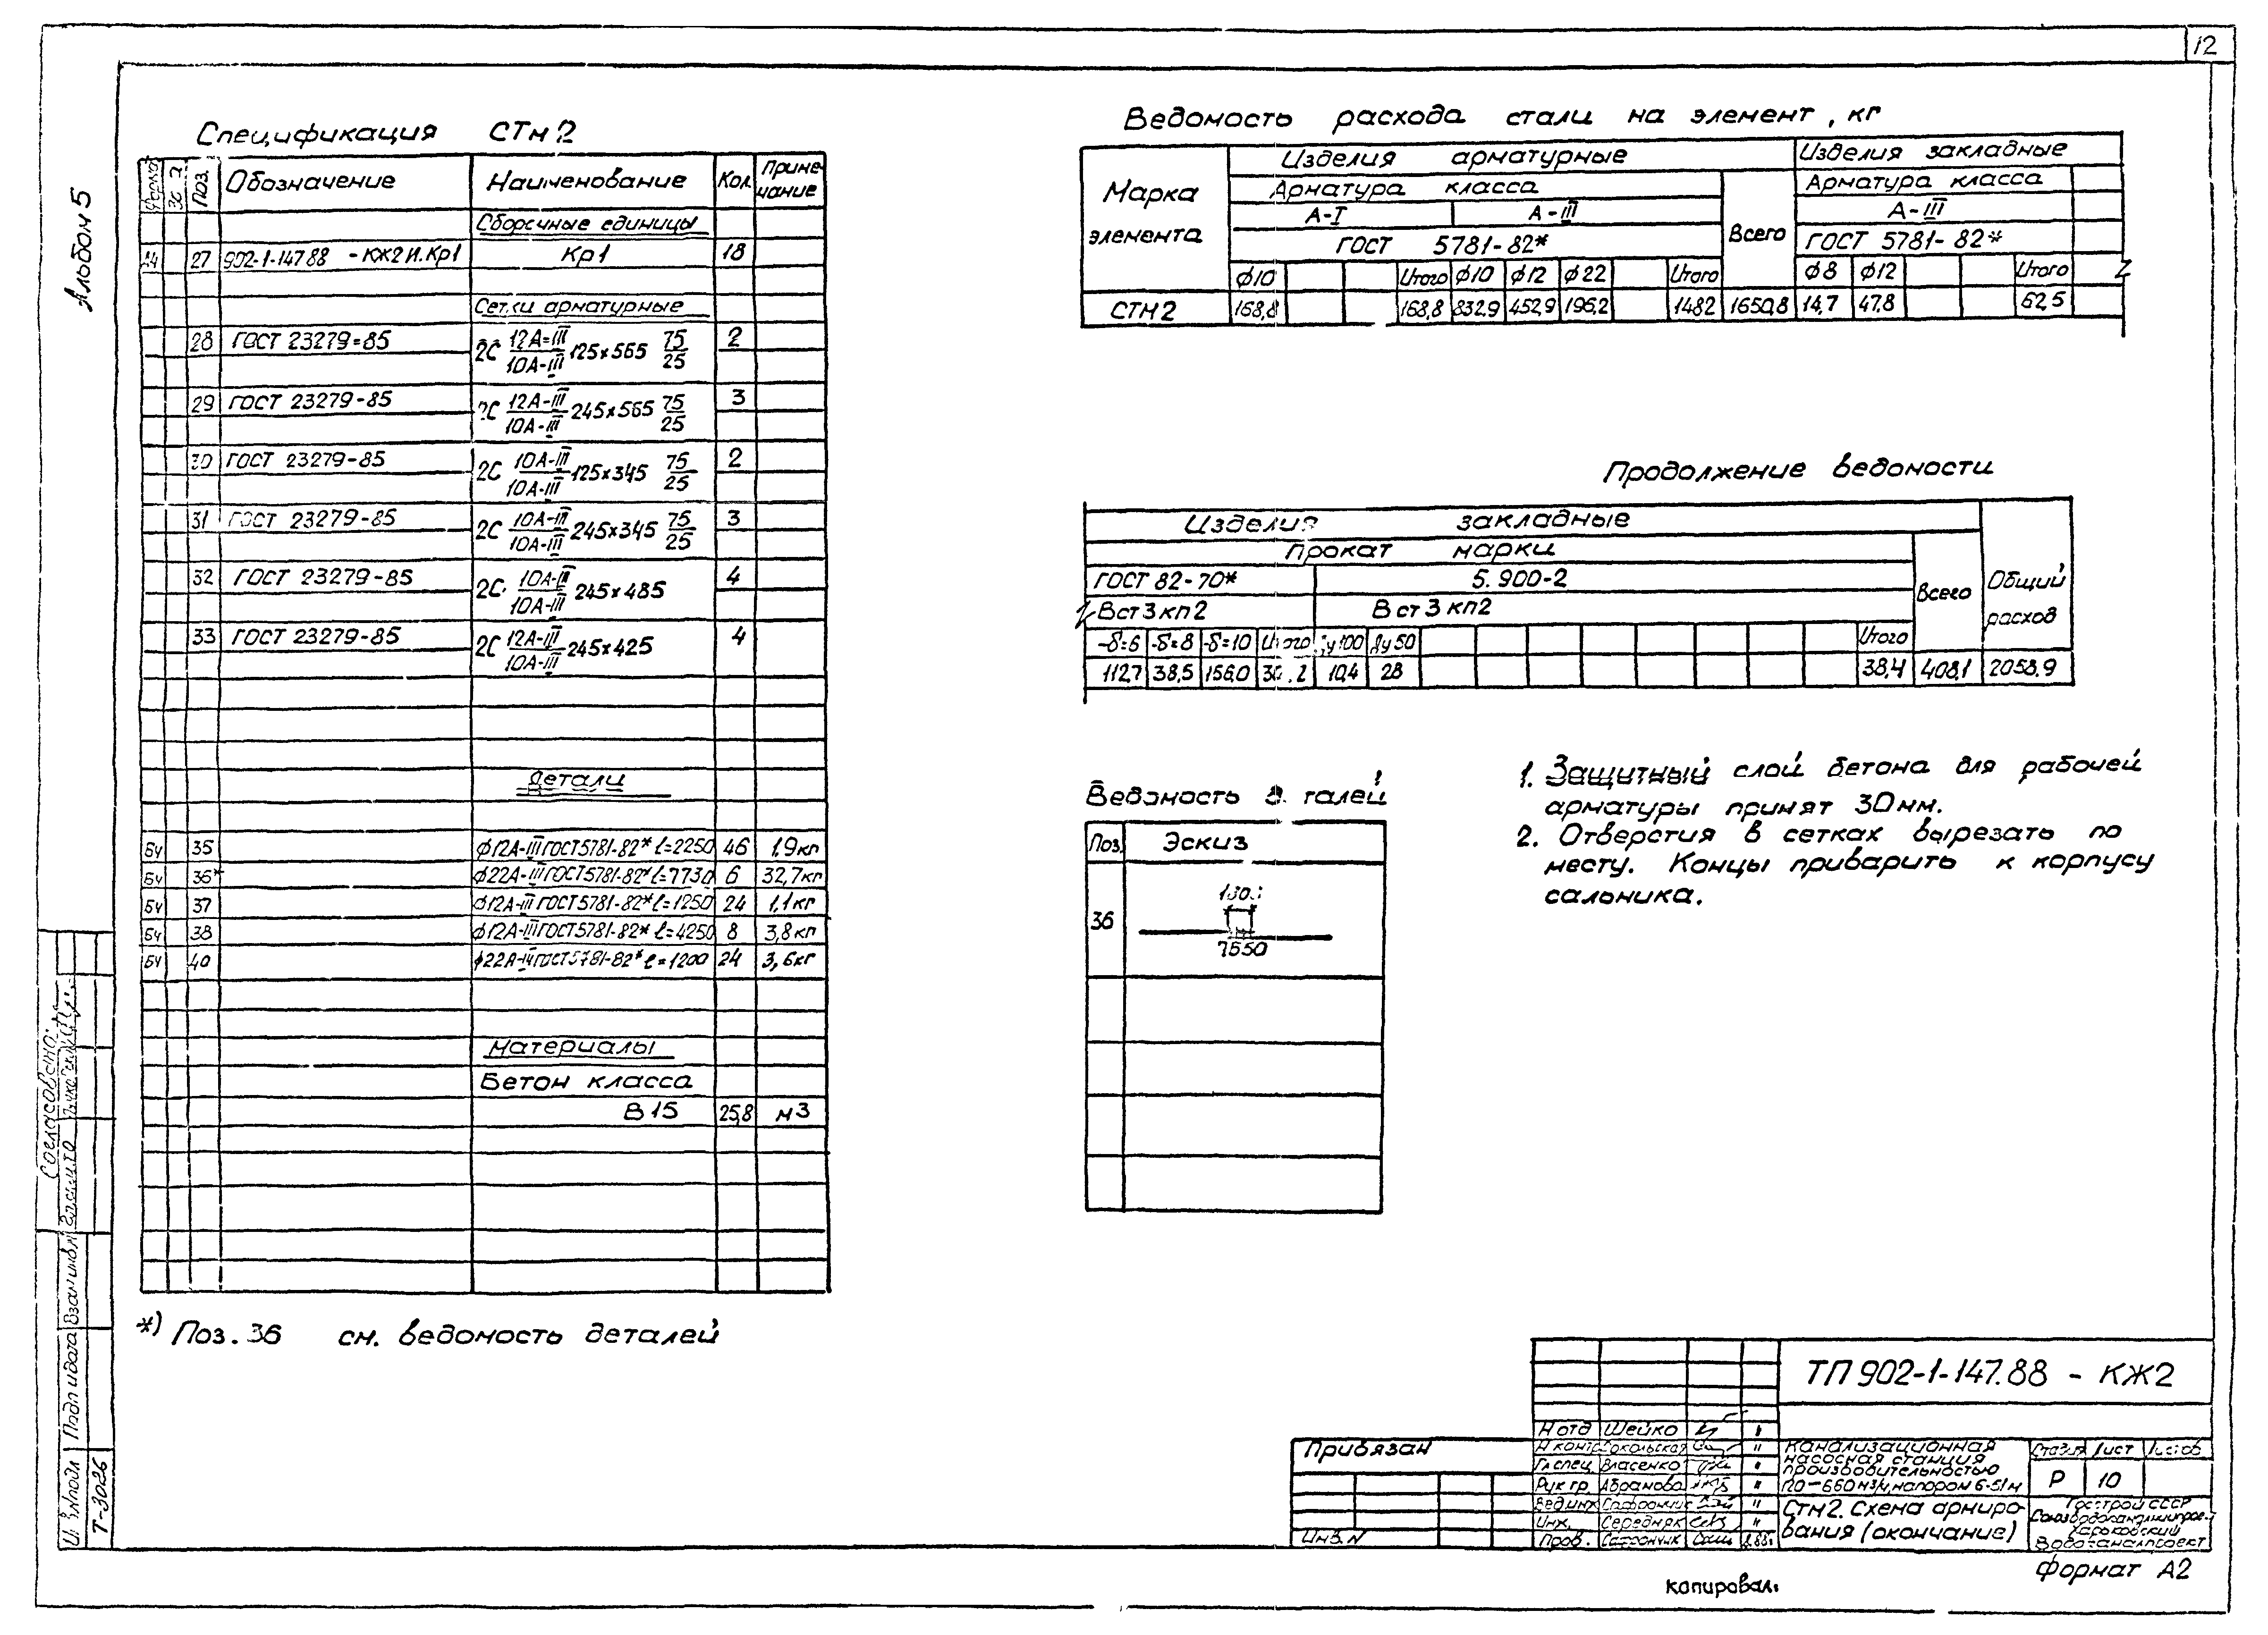 12
Альбом 5
Спецификация СТм2
Поз. Обозначение Наименование Кол. Примечание
Сборочные единицы
А4 27 902-1-147.88 - КЖ2И.Кр1 Кр1 18
Сетки арматурные
28 ГОСТ 23279-85 2С 12А-III/10А-III 125×565 75/25 2
29 ГОСТ 23279-85 2С 12А-III/10А-III 245×565 75/25 3
30 ГОСТ 23279-85 2С 10А-III/10А-III 125×345 75/25 2
31 ГОСТ 23279-85 2С 10А-III/10А-III 245×345 75/25 3
32 ГОСТ 23279-85 2С 10А-III/10А-III 245×485 4
33 ГОСТ 23279-85 2С 12А-III/10А-III 245×425 4
Детали
БЧ 35 ф12А-III ГОСТ5781-82* ℓ=2250 46 1,9кг
БЧ 36* ф22А-III ГОСТ5781-82* ℓ=7730 6 32,7кг
БЧ 37 ф12А-III ГОСТ5781-82* ℓ=1250 24 1,1кг
БЧ 38 ф12А-III ГОСТ5781-82* ℓ=4250 8 3,8кг
БЧ 40 ф22А-III ГОСТ5781-82* ℓ=1200 24 3,6кг
Материалы
Бетон класса
В15 25,8 м3
*) Поз. 36 см. ведомость деталей
Ведомость расхода стали на элемент, кг
Марка элемента Изделия арматурные Изделия закладные
Арматура класса Всего Арматура класса
А-I А-III А-III
ГОСТ 5781-82* ГОСТ 5781-82*
ф10 Итого ф10 ф12 ф22 Итого ф8 ф12 Итого
СТм2 168,8 168,8 832,9 452,9 196,2 1482 1650,8 14,7 47,8 62,5
Продолжение ведомости
Изделия закладные
Прокат марки Всего Общий расход
ГОСТ 82-70* 5.900-2
Вст3кп2 Вст3кп2
-δ=6 -δ=8 -δ=10 Итого Ду100 Ду50 Итого
112,7 38,5 156,0 10,4 28 38,4 408,1 2058,9
Ведомость деталей
Поз. Эскиз
36
7550
1. Защитный слой бетона для рабочей
арматуры принят 30мм.
2. Отверстия в сетках вырезать по
месту. Концы приварить к корпусу
сальника.
Согласовано:
Взам инв.
Подп и дата
Инв. № подл
Т-3026
Привязан
Инв. N
ТП 902-1-147.88 - КЖ2
Н отд Шейко "
Н контр Сокольская "
Гл спец. Власенко "
Рук гр. Абрамова "
Вед.инж Сафрончик "
Инж. Середняк "
Пров. Сафрончик
Канализационная
насосная станция
производительностью
120-660 м3/ч, напором 6-51м
Стм2. Схема армиро-
вания (окончание)
Стадия Лист Листов
Р 10
Госстрой СССР
Союзводоканалниипроект
Харьковский
Водоканалпроект
копировал:
Формат А2